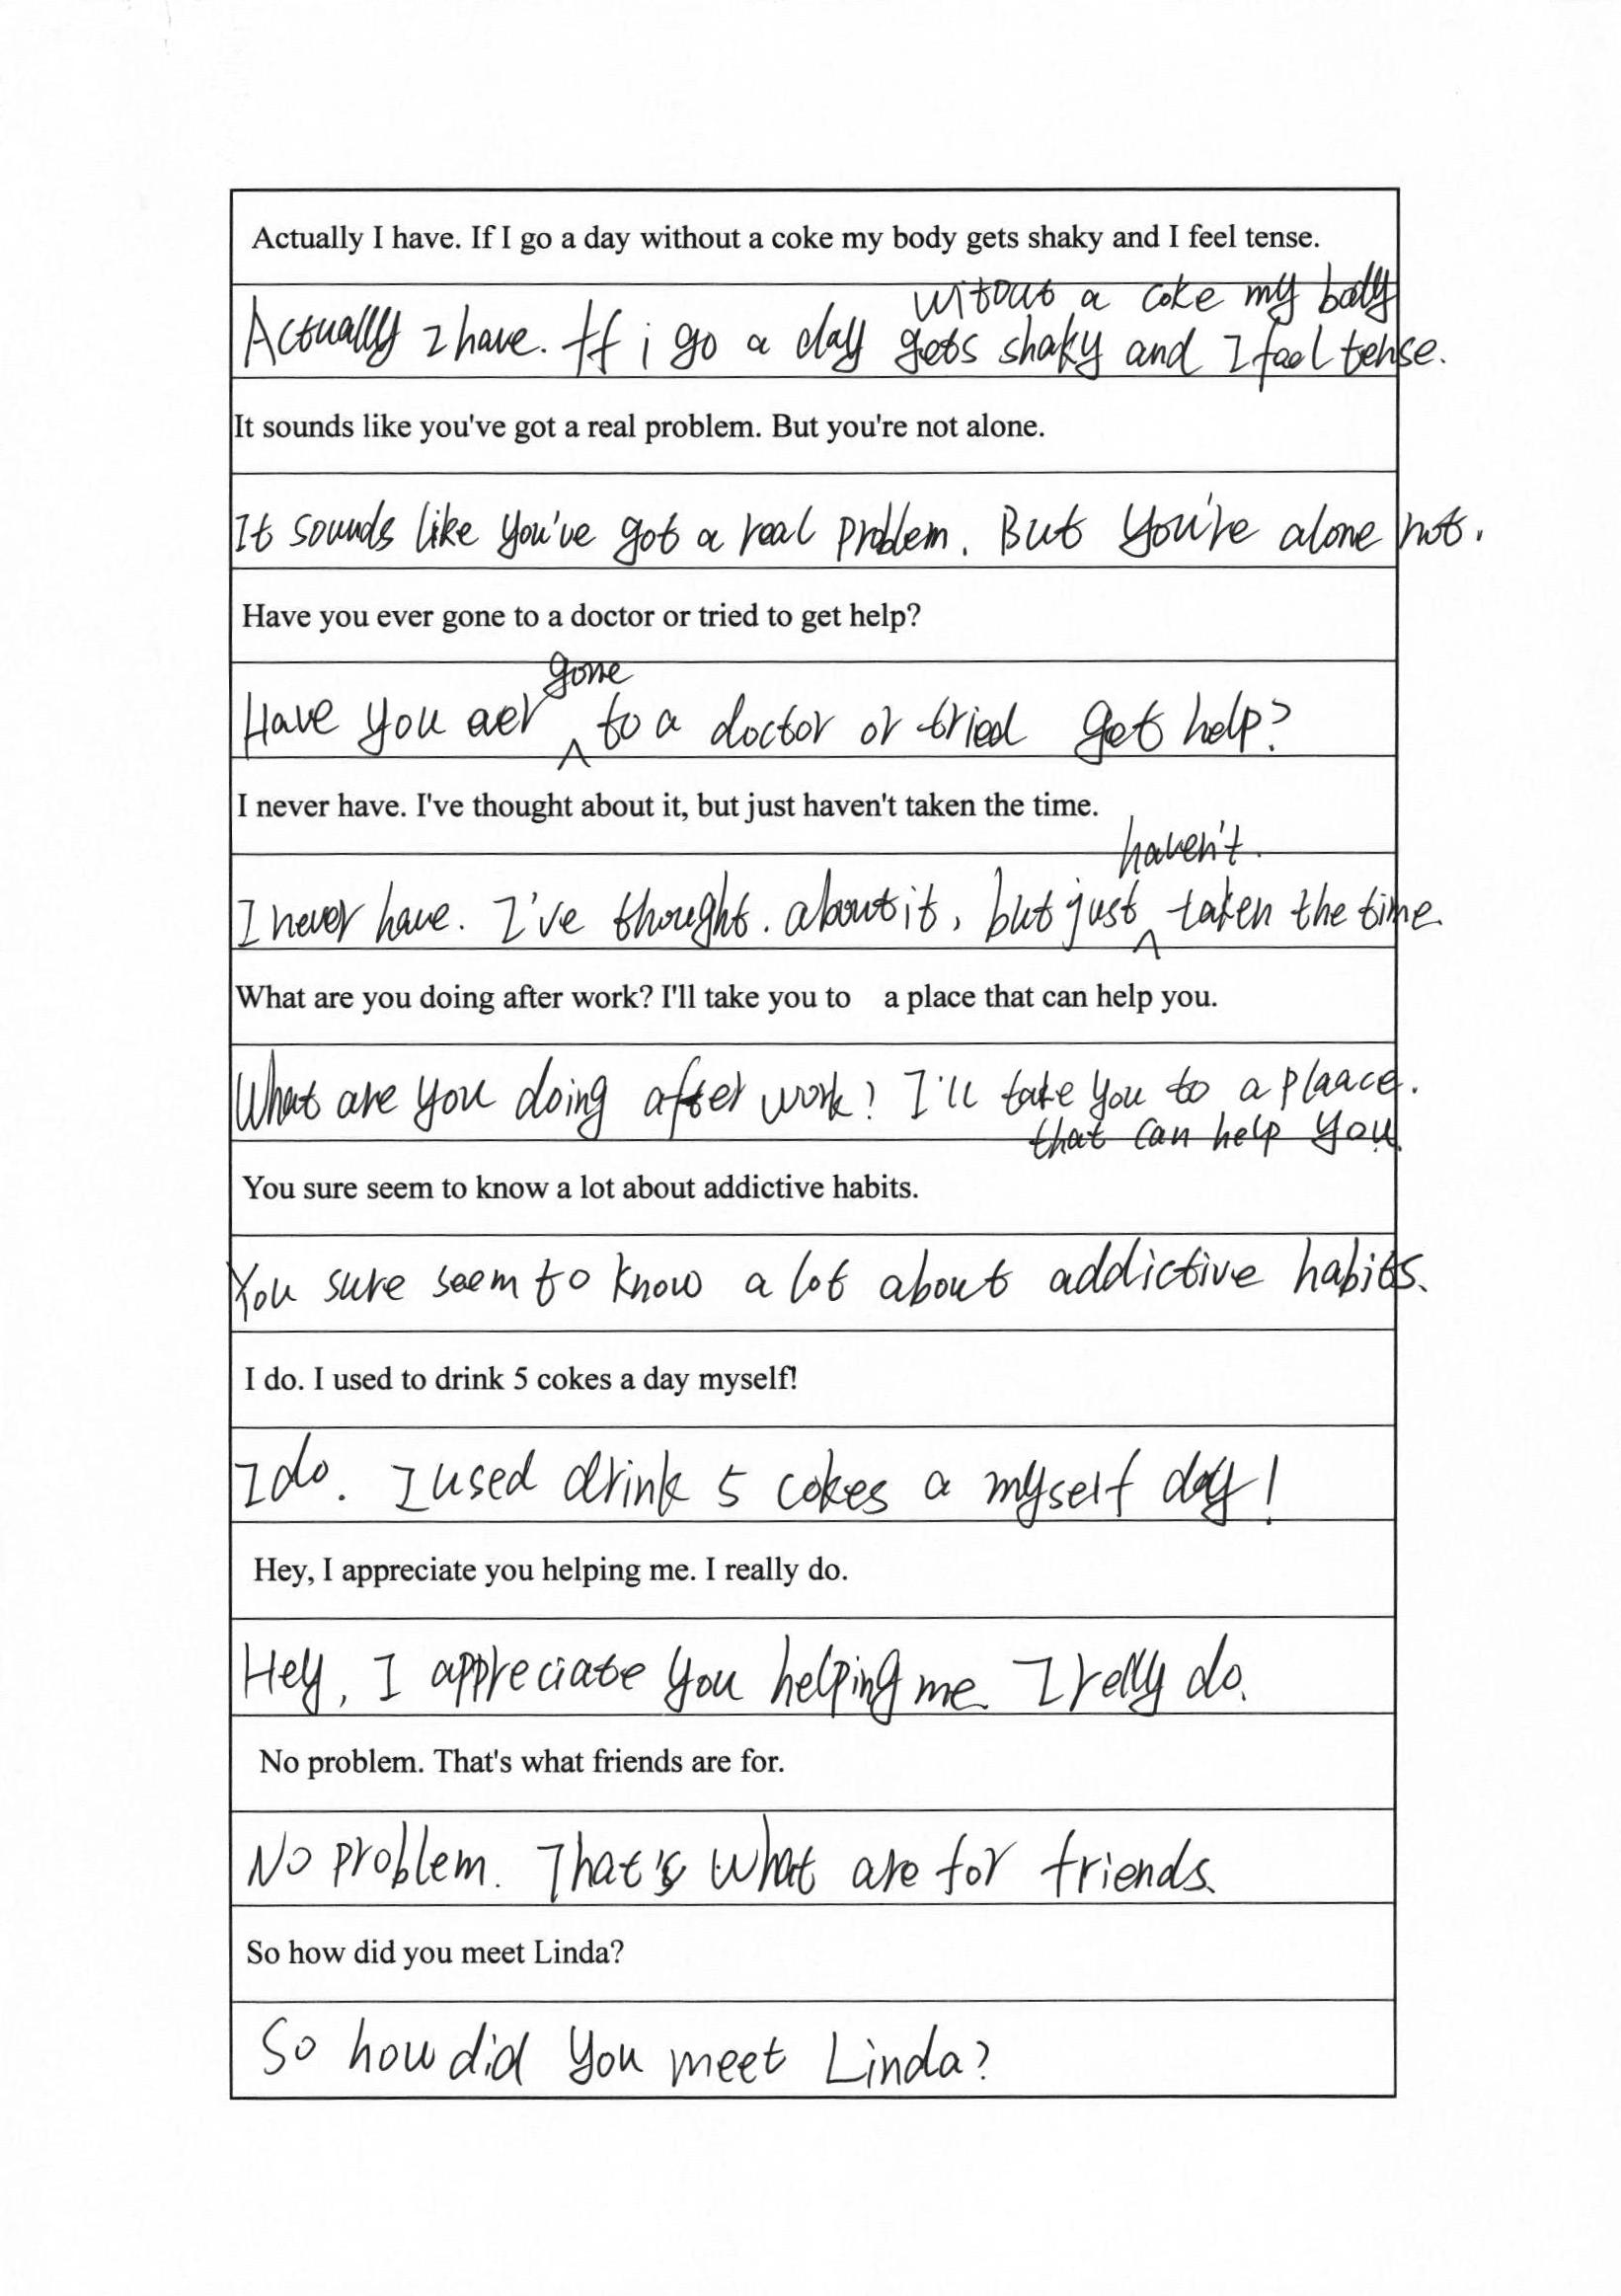 Actually I have. If I go a day without a coke my body gets shaky and I feel tense.
witout a coke my body
Actuallly I have. If i go a day gets shaky and I feel tense.
It sounds like you've got a real problem. But you're not alone.
It sounds like you've got a real problem. But you're alone not.
Have you ever gone to a doctor or tried to get help?
gone
Have you ever ^ to a doctor or tried get help?
I never have. I've thought about it, but just haven't taken the time.
haven't.
I never have. I've thought. about it, but just ^ taken the time.
What are you doing after work? I'll take you to a place that can help you.
What are you doing after work? I'll take you to a plaace.
that can help you.
You sure seem to know a lot about addictive habits.
You sure seem to know a lot about addictive habits.
I do. I used to drink 5 cokes a day myself!
I do. I used drink 5 cokes a myself day!
Hey, I appreciate you helping me. I really do.
Hey, I appreciate you helping me. I relly do.
No problem. That's what friends are for.
No problem. That's what are for friends.
So how did you meet Linda?
So how did you meet Linda?